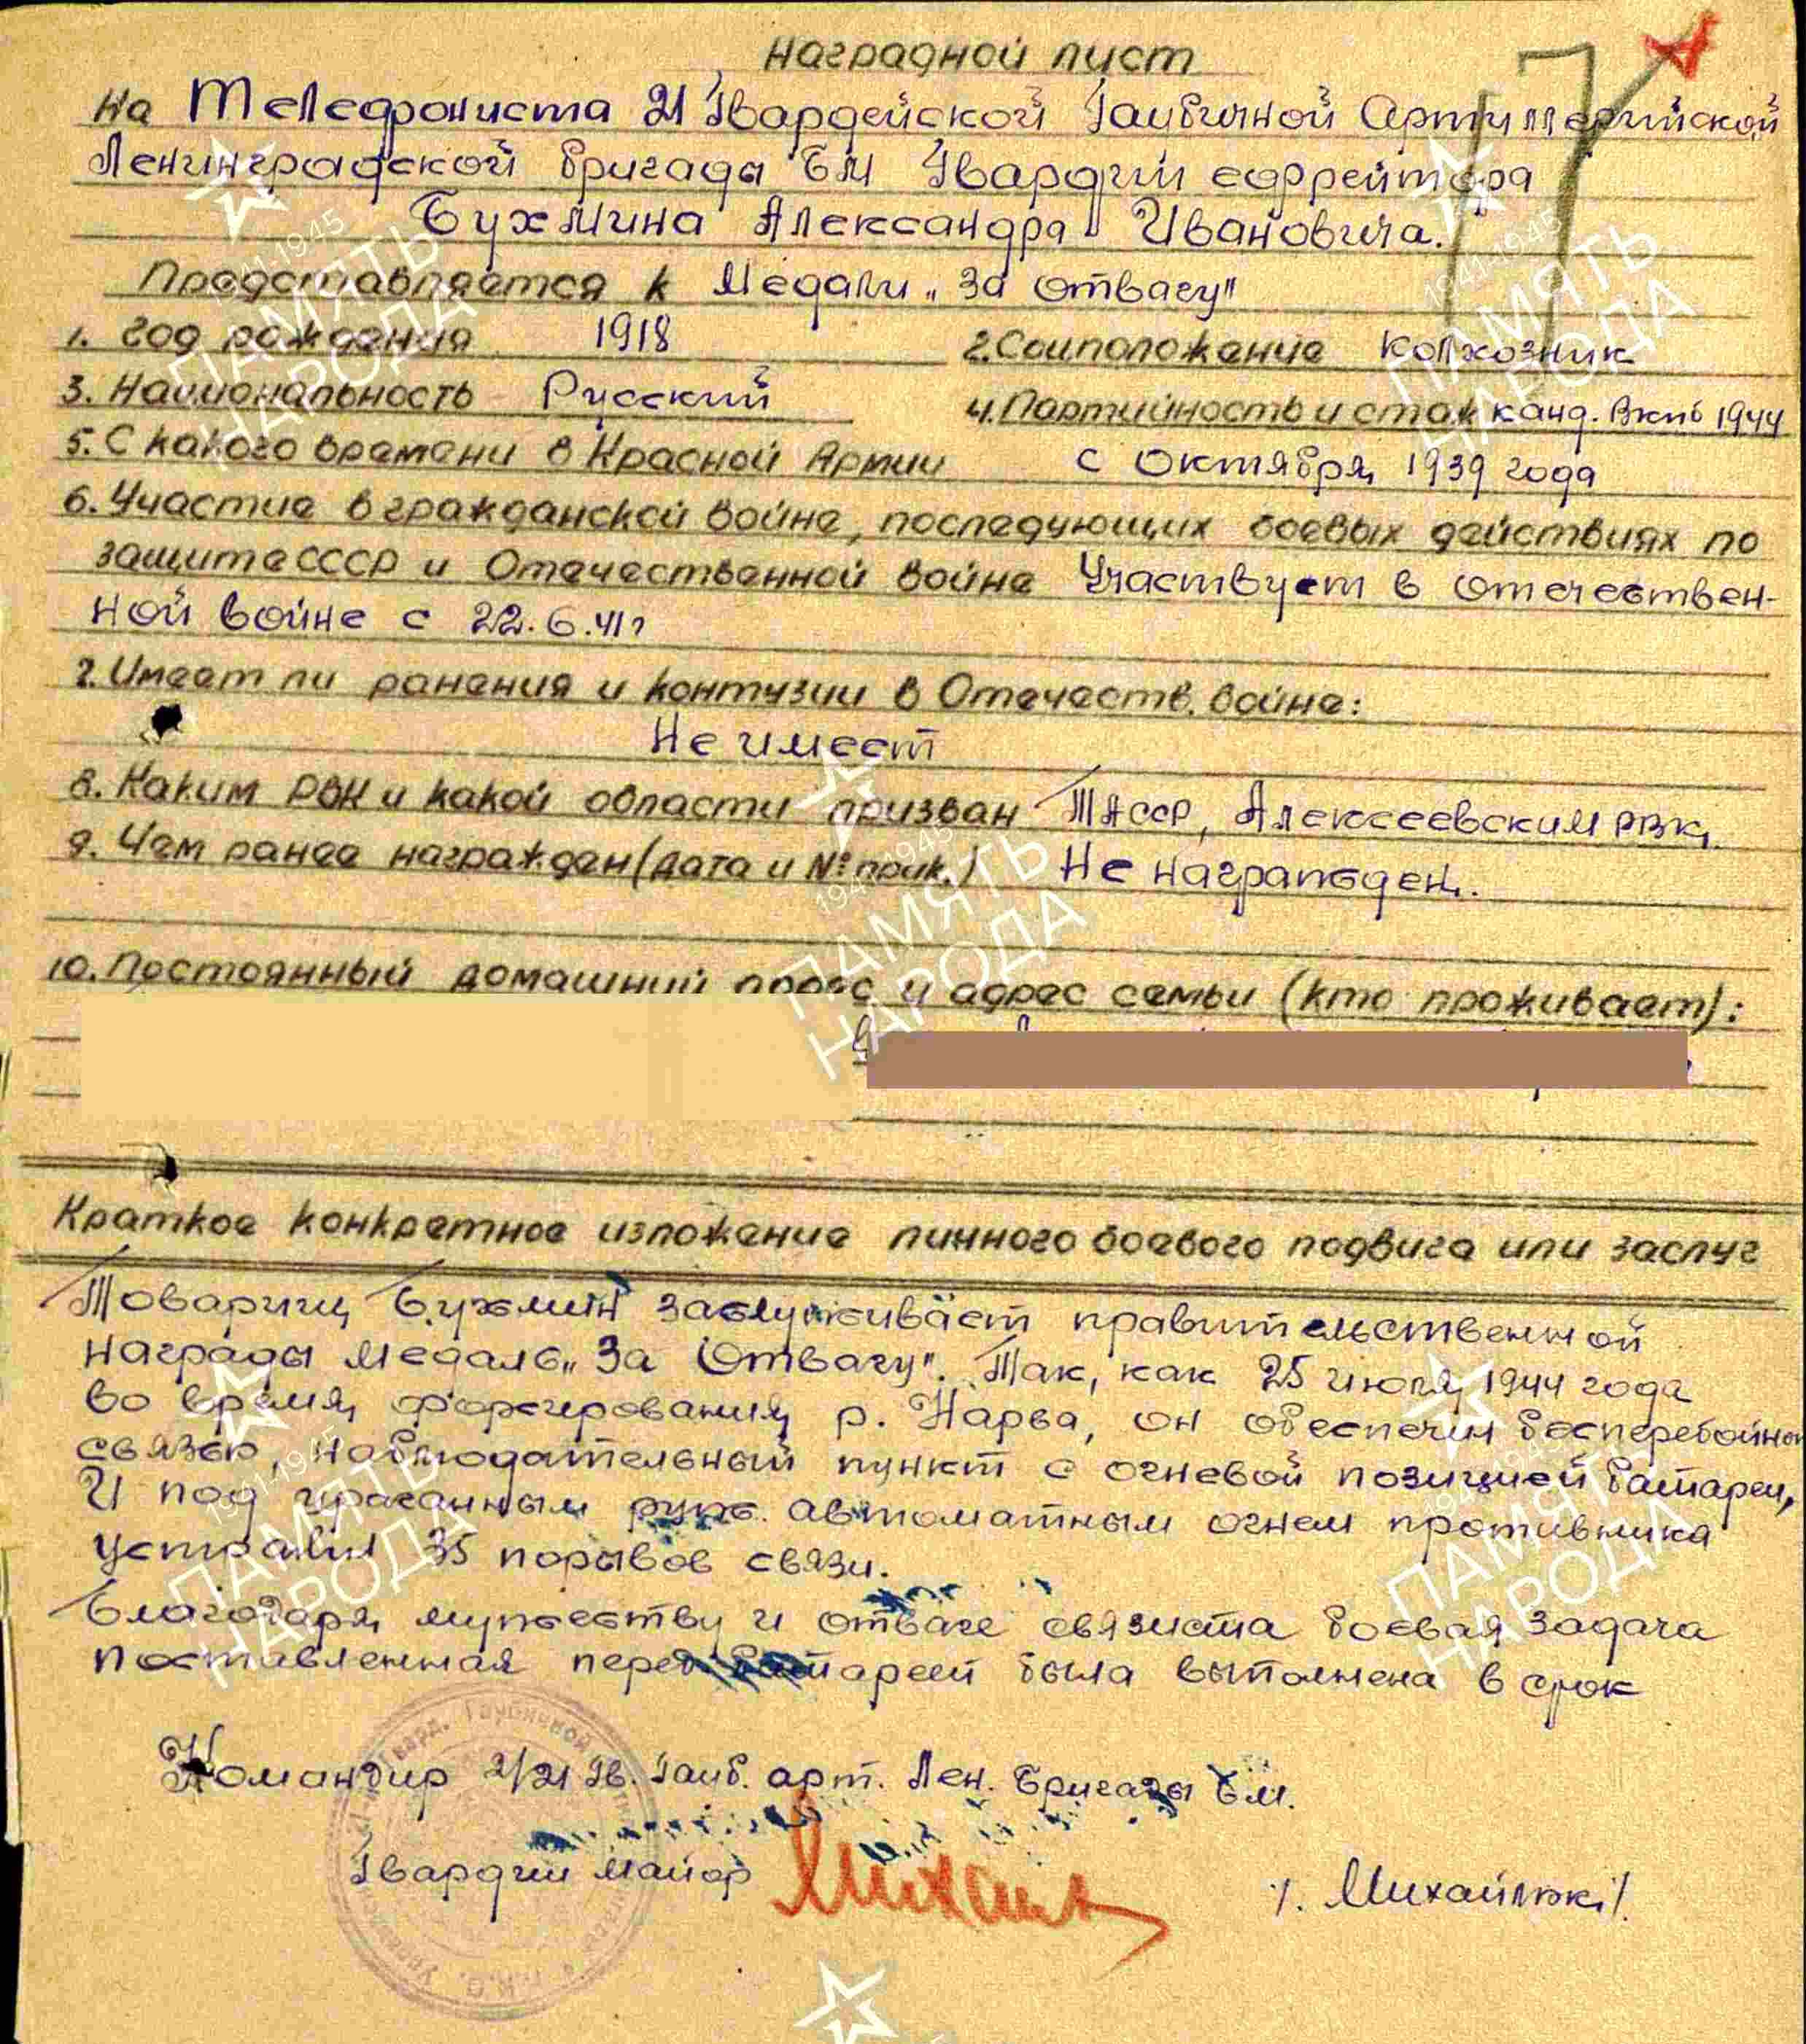 Наградной лист
На Телефониста 21 Гвардейской Гаубичной Артиллерийской
Ленинградской бригады БМ Гвардии ефрейтора
Бухмина Александра Ивановича.
Представляется к Медали „За отвагу"
1. Год рождения 1918 2. Соцположение колхозник
3. Национальность Русский 4. Партийность и стаж канд. ВКПб 1944
5. С какого времени в Красной Армии с октября 1939 года
6. Участие в гражданской войне, последующих боевых действиях по
защите СССР и Отечественной войне Участвует в отечествен-
ной войне с 22.6.41г
7. Имеет ли ранения и контузии в Отечеств. войне:
Не имеет
8. Каким РВК и какой области призван ТАССР, Алексеевским РВК.
9. Чем ранее награжден (дата и № прик.) Не награжден.
10. Постоянный домашний адрес и адрес семьи (кто проживает):
Краткое конкретное изложение личного боевого подвига или заслуг
Товарищ Бухмин заслуживает правительственной
награды медаль „За Отвагу". Так, как 25 июля 1944 года
во время форсирования р. Нарва, он обеспечил бесперебойно
связью, наблюдательный пункт с огневой позицией батареи,
И под ураганным руж. автоматным огнем противника
устранил 35 порывов связи.
Благодаря мужеству и отваге связиста боевая задача
поставленная перед батареей была выполнена в срок
Командир 2/21 Гв. Гауб. арт. Лен. Бригады БМ.
Гвардии майор /. Михайлюк/.
ПАМЯТЬ
НАРОДА
1941-1945